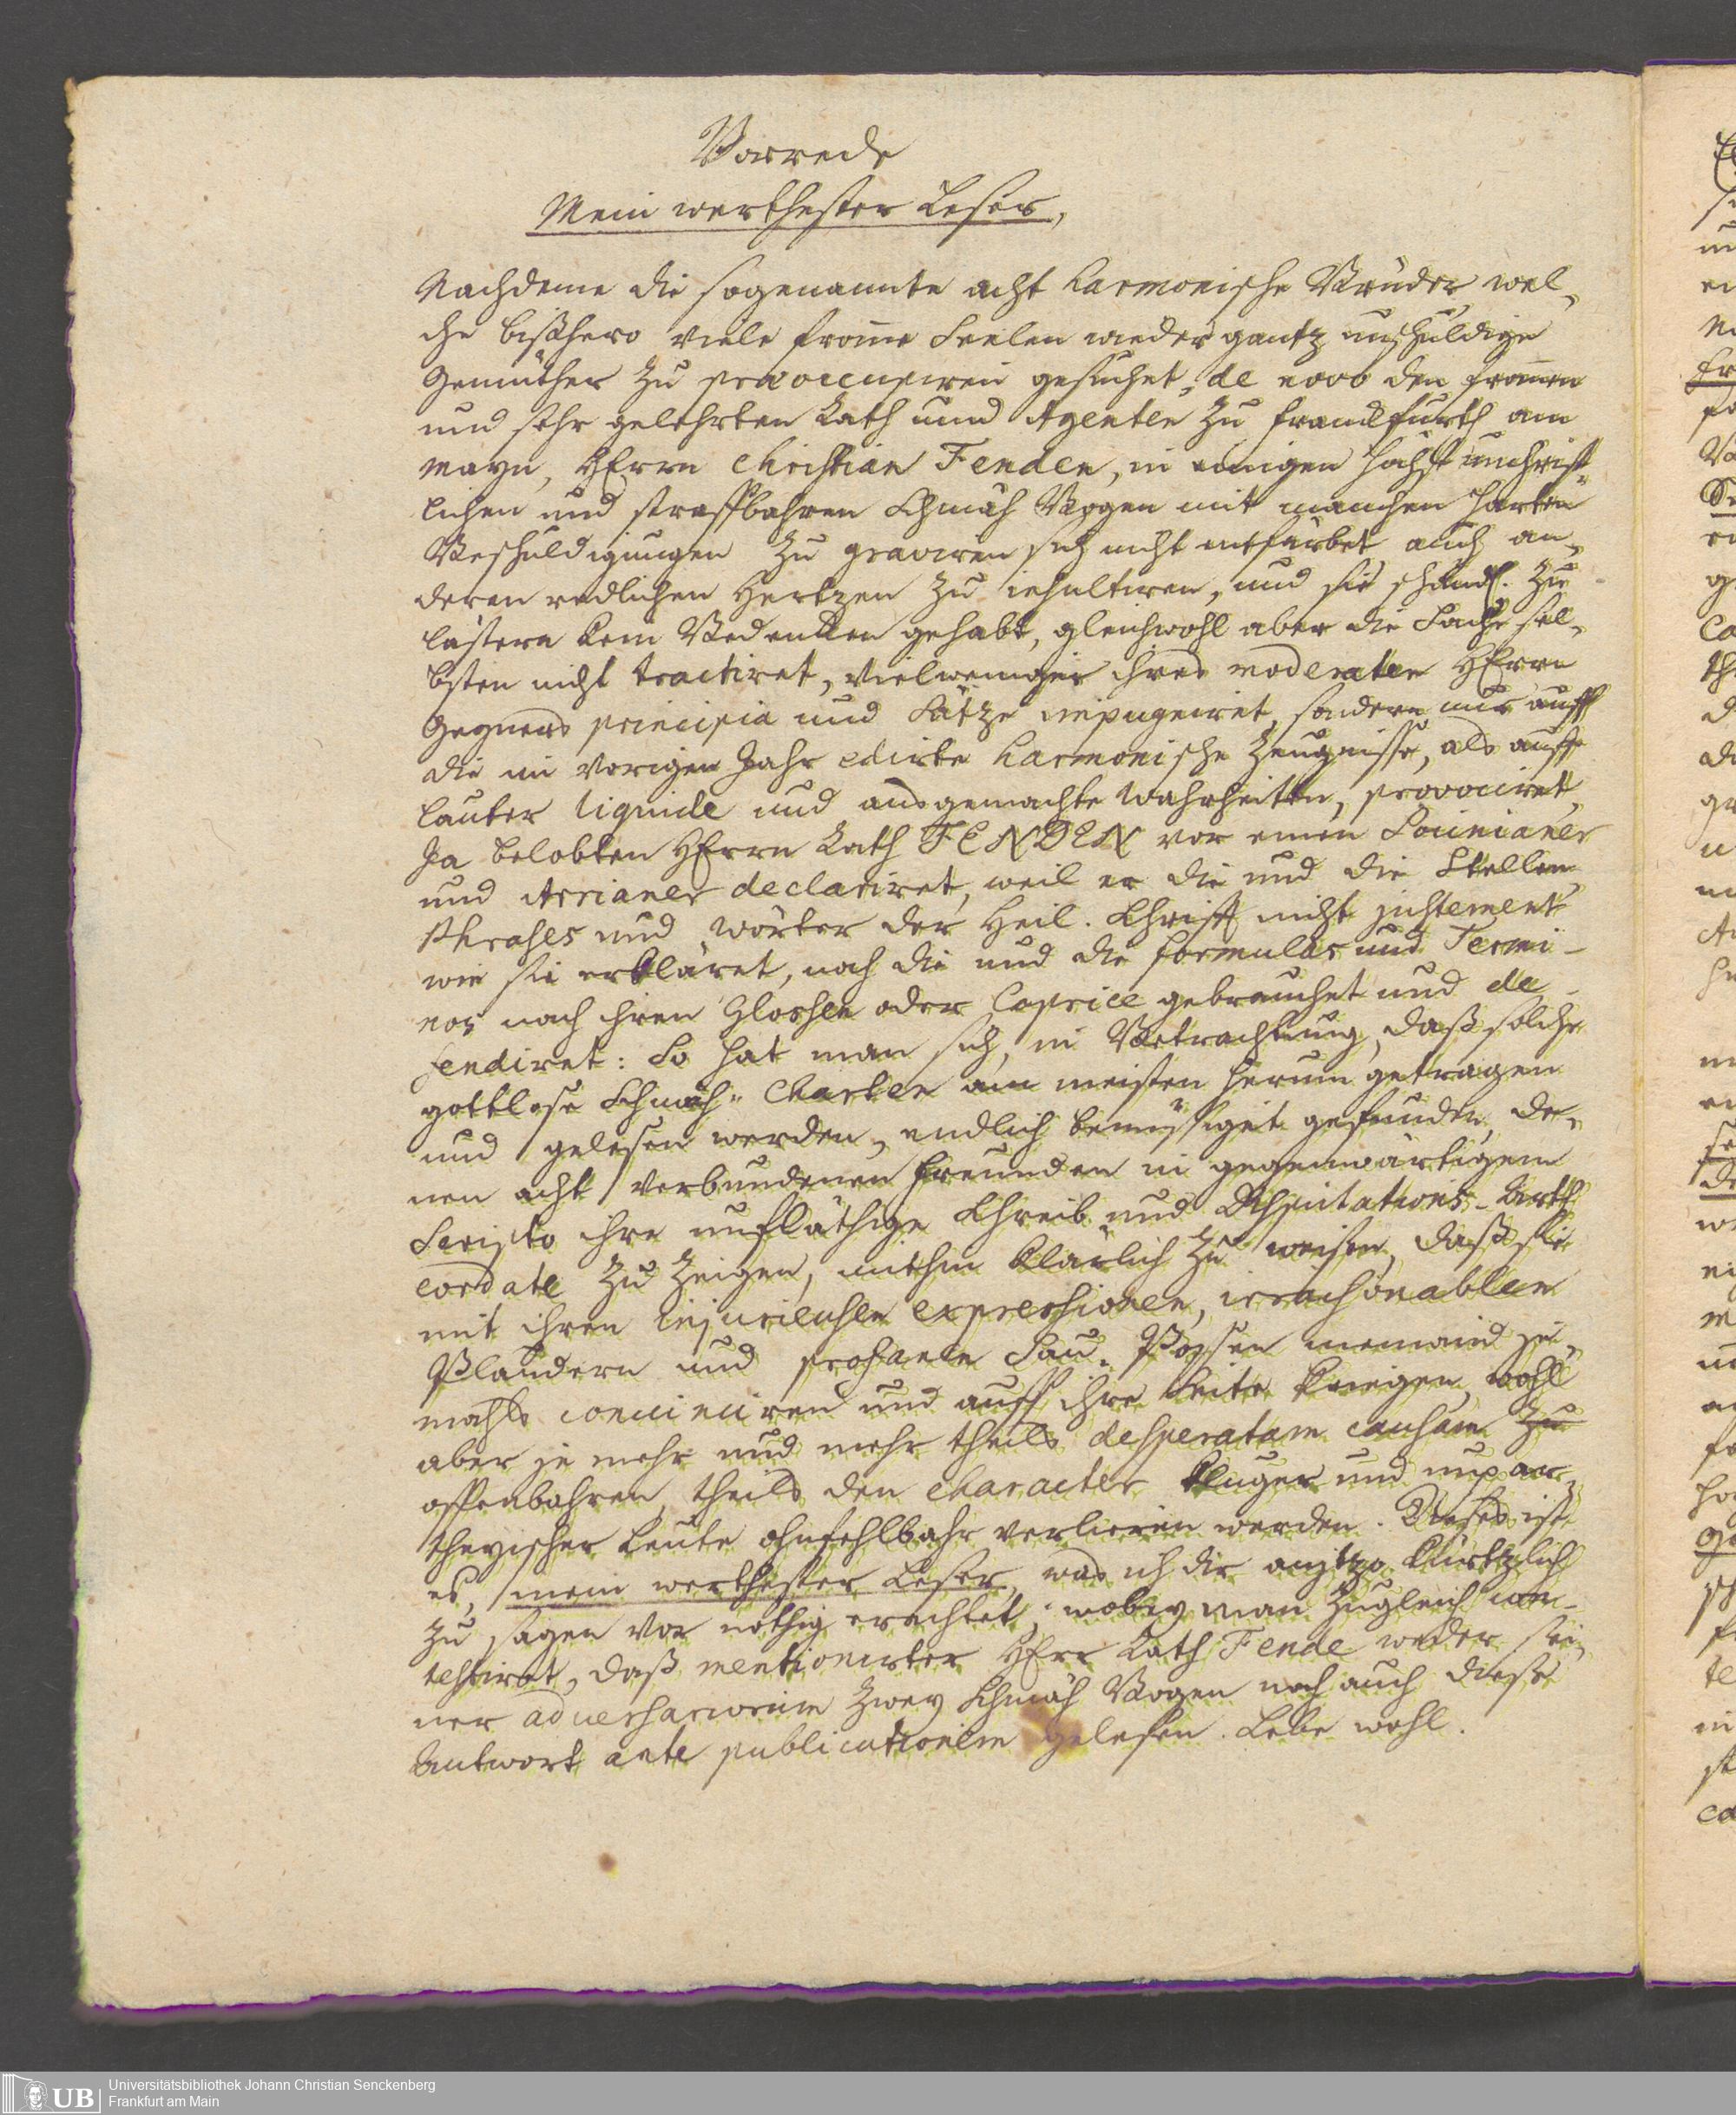 Vorrede
Mein werthester Leser,
Nachdeme die sogenannte acht harmonische Brüder wel-
che bißhero viele from̅e Seelen wieder gantz unschuldige
Gemüther zu praeoccupiren gesuchet, de novo den from̅en
und sehr gelehrten Rath und Agenten zu Franckfurth am
Mayn, HErrn Christian Fenden, in einigen höchst unchrist-
lichen und straffbahren Schmäh Bogen mit manchen harten
Beschuldigungen zu graviren sich nicht entfärbet auch an-
deren redlichen Hertzen zu insultiren, und sie schändl. zu
lästern kein Bedencken gehabt, gleichwohl aber die Sache sel-
bsten nicht tractiret, vielweniger ihres moderaten HErrn
Gegners principia und Sätze impugniret, sondern nur auff
die im vorigen Jahr edirte harmonische Zeugnisse, als auff
lauter liquide und ausgemachte Wahrheiten, provociret,
Ja belobten HErrn Rath FENDEN vor einen Socinianer
und Arrianer declariret, weil er die und die Stellen
Phrases und Wörter der Heil. Schrifft nicht justement
wie sie erkläret, noch die und die formulas und Termi-
nos nach ihren Glossen oder Caprice gebrauchet und de-
fendiret: So hat man sich, in Betrachtung, daß solche
gottlose Schmäh-Charten am meisten herum getragen
und gelesen werden, endlich bemüssiget gefunden, de-
nen acht verbundenen Freunden in gegenwärtigem
Scripto ihre unfläthige Schreib und Disputations-Arth
cordate zu zeigen, mithin klärlich zu weisen, daß sie
mit ihren injurieusen expressionen, irraisonablen
Plaudern und profanen Sau-Possen niemand je-
mahls convinciren und auff ihre Seite kriegen, wohl
aber je mehr und mehr theils desperatam causam zu
offenbahren, theils den character kluger und unpar-
theyischer Leute ohnfehlbahr verlieren werden. Dieses ist
es, mein werthester Leser, was ich dir anjtzo kürtzlich
zu sagen vor nöthig erachtet; wobey man zugleich con-
testiret, daß mentionirter HErr Rath Fende weder sei-
ner adversariorum zwey Schmäh Bogen noch auch diese
Antwort ante publicationem gelesen. Lebe wohl.
UB
Universitätsbibliothek Johann Christian Senckenberg
Frankfurt am Main